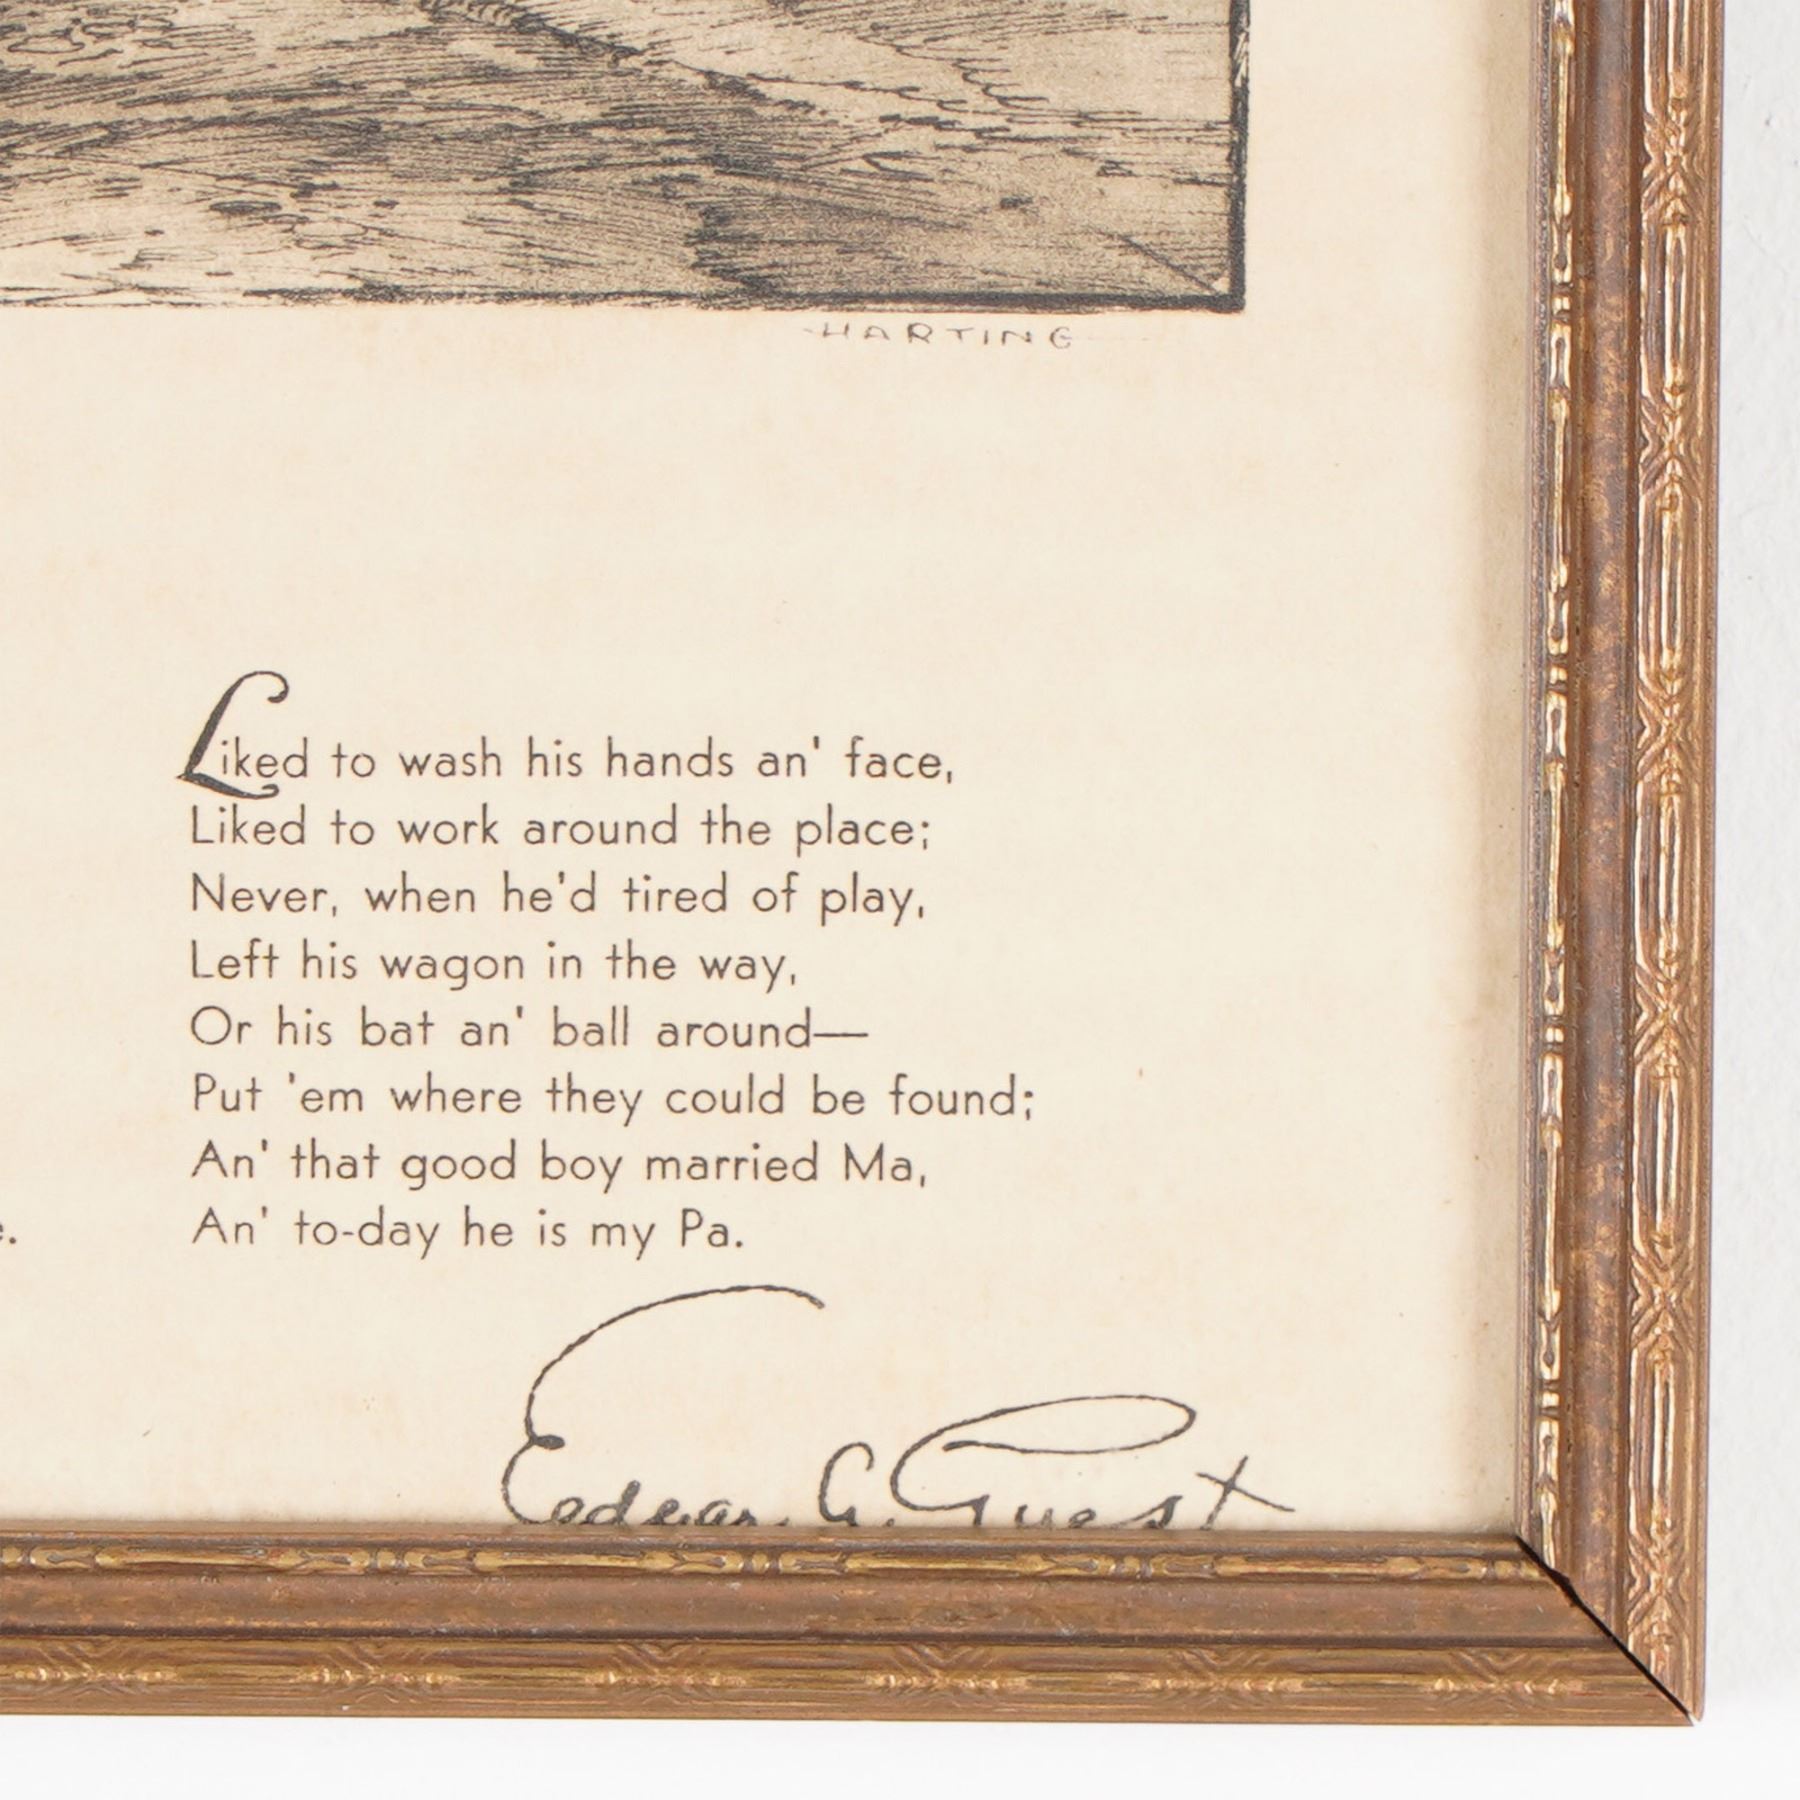 HARTING
Liked to wash his hands an' face,
Liked to work around the place;
Never, when he'd tired of play,
Left his wagon in the way,
Or his bat an' ball around—
Put 'em where they could be found;
An' that good boy married Ma,
An' to-day he is my Pa.
Edgar A. Guest